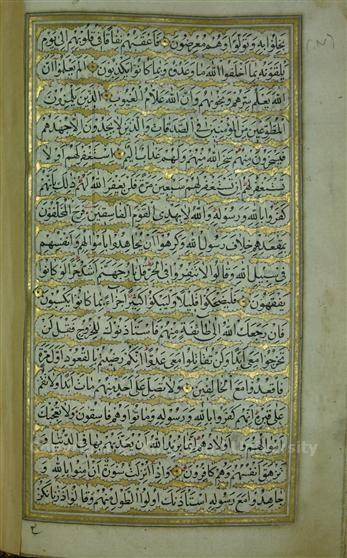 بخلوا به وتولوا وهم معرضون فاعقبهم نفاقا في قلوبهم الى يوم
يلقونه بما اخلفوا الله ما وعدوه وبما كانوا يكذبون الم يعلموا ان
الله يعلم سرهم ونجويهم وان الله علام الغيوب الذين يلمزون
المطوعين من المؤمنين في الصدقات والذين لا يجدون الا جهدهم
فيسخرون منهم سخر الله منهم ولهم عذاب اليم استغفر لهم او لا
تستغفر لهم ان تستغفر لهم سبعين مرة فلن يغفر الله لهم ذلك بانهم
كفروا بالله ورسوله والله لا يهدي القوم الفاسقين فرح المخلفون
بمقعدهم خلاف رسول الله وكرهوا ان يجاهدوا باموالهم وانفسهم
في سبيل الله وقالوا لا تنفروا في الحر قل نار جهنم اشد حرا لو كانوا
يفقهون فليضحكوا قليلا وليبكوا كثيرا جزاء بما كانوا يكسبون
فان رجعك الله الى طائفة منهم فاستاذنوك للخروج فقل لن
تخرجوا معي ابدا ولن تقاتلوا معي عدوا انكم رضيتم بالقعود اول مرة
فاقعدوا مع الخالفين ولا تصل على احد منهم مات ابدا ولا تقم
على قبره انهم كفروا بالله ورسوله وماتوا وهم فاسقون ولا تعجبك
اموالهم واولادهم انما يريد الله ان يعذبهم بها في الدنيا و
تزهق انفسهم وهم كافرون واذا انزلت سورة ان امنوا بالله و
جاهدوا مع رسوله استاذنك اولوا الطول منهم وقالوا ذرنا نكن
University